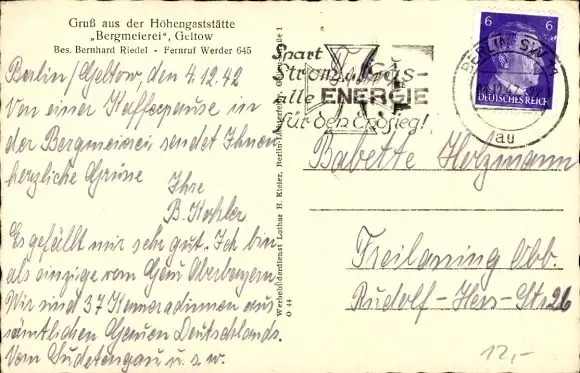 Gruß aus der Höhengaststätte
„Bergmeierei", Geltow
Bes. Bernhard Riedel - Fernruf Werder 645
Berlin/Geltow, den 4.12.42
Von einer Kaffeepause in
der Bergmeierei sendet Ihnen
herzliche Grüsse
Ihre
B. Kohler
Es gefällt mir sehr gut. Ich bin
als einzige vom Gau Oberbayern.
Wir sind 37 Kameradinnen aus
sämtlichen Gauen Deutschlands.
Vom Sudetengau u. s. w.
Werbebilderdienst Lothar H. Kieler, Berlin-Lichterfelde
O 44
Spart
Strom u. Gas-
alle ENERGIE
für den Endsieg!
6 6
DEUTSCHES REICH
BERLIN SW 11
Babette Holzmann
Freilassing Obb.
Rudolf-Hess-Str. 26
12,-